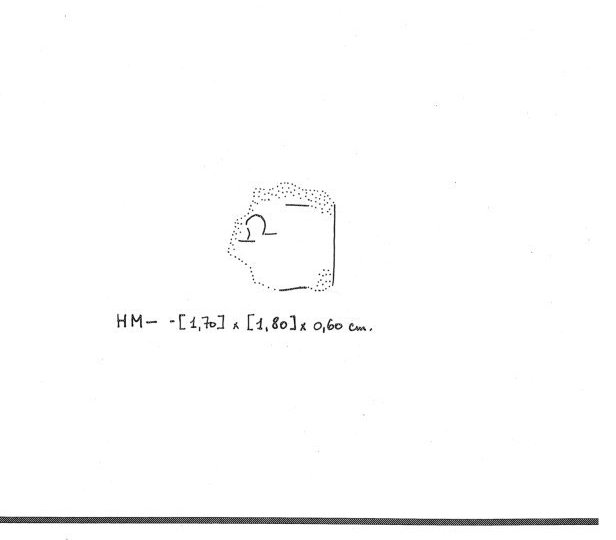 HM– -[1,70] x [1,80] x 0,60 cm.